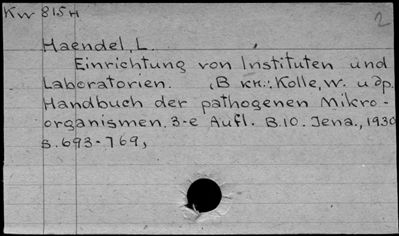 Kw 815H
2
Haendel, L.
Einrichtung von Instituten und
Laboratorien. (В кн.: Kolle, W. и др.
Handbuch der pathogenen Mikro-
organismen. 3-е Aufl. B.10. Jena., 1930
S. 693-769,